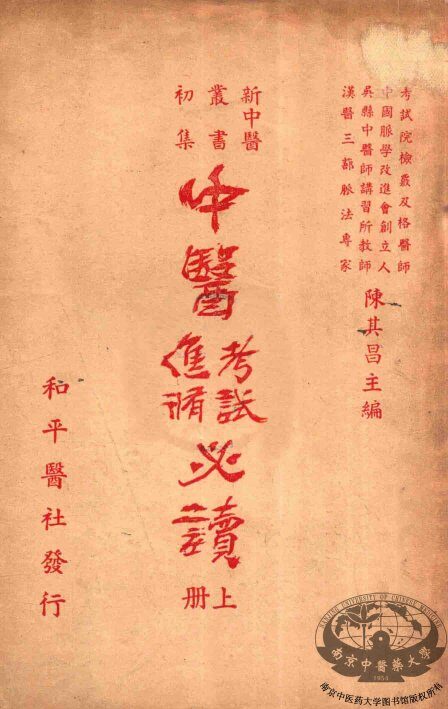 考試院檢覈及格醫師
中國脈學改進會創立人
吳縣中醫師講習所教師
漢醫三部脈法專家
陳其昌主編
新中醫
叢書
初集
中醫
考試
進脩
必讀
上
册
和平醫社發行
NANJING UNIVERSITY OF CHINESE MEDICINE
南京中醫藥大學
1954
南京中医药大学图书馆版权所有